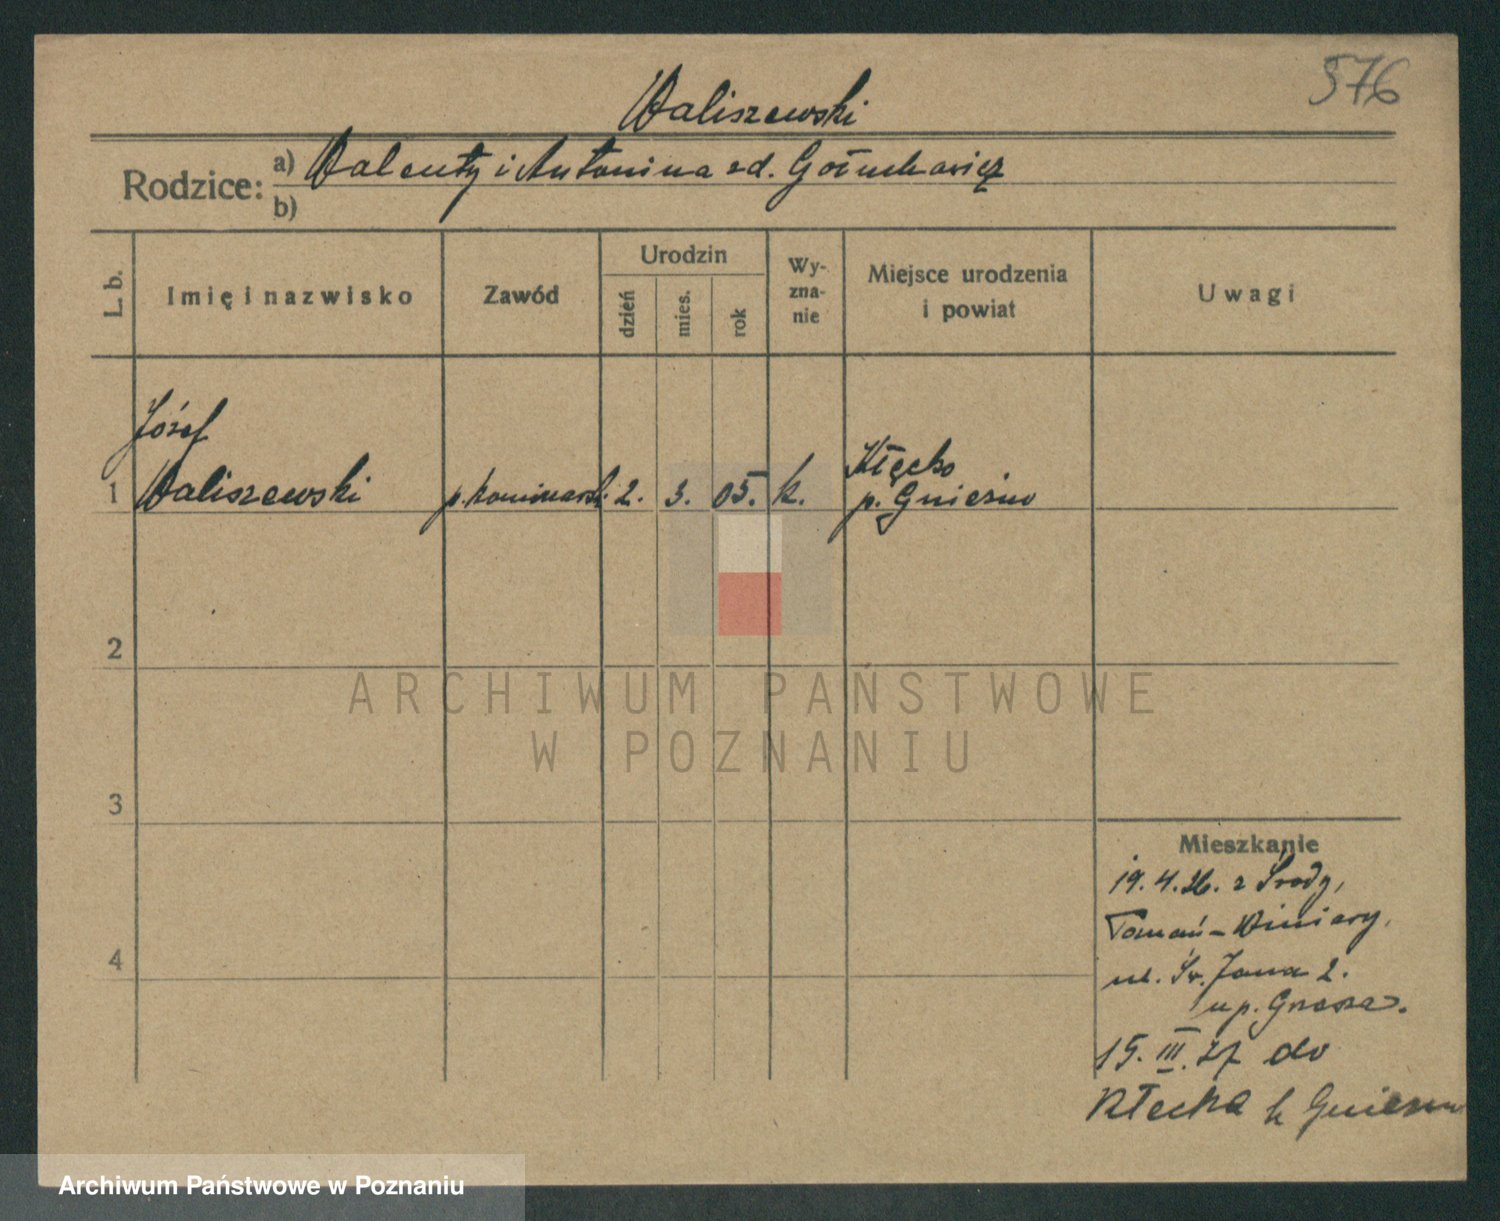 576
Waliszewski
Rodzice: a) Walenty i Antonina zd. Gołuchowicz
b)
L. b. Imię i nazwisko Zawód Urodzin dzień mies. rok Wy-zna-nie Miejsce urodzenia i powiat Uwagi
Józef Kłecko
1 Waliszewski p. kominiarsk. 2. 3. 05. k. p. Gniezno
2
ARCHIWUM PAŃSTWOWE
W POZNANIU
3
Mieszkanie
19. 4. 26. z Środy,
4 Poznań - Winiary,
ul. Św. Jana 2.
u p.
15. III. 27 do
Kłecka k Gniezna
Archiwum Państwowe w Poznaniu